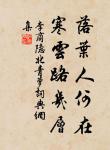 落葉人何在
寒雲路幾層
李商隱北青蘿詞典網
集